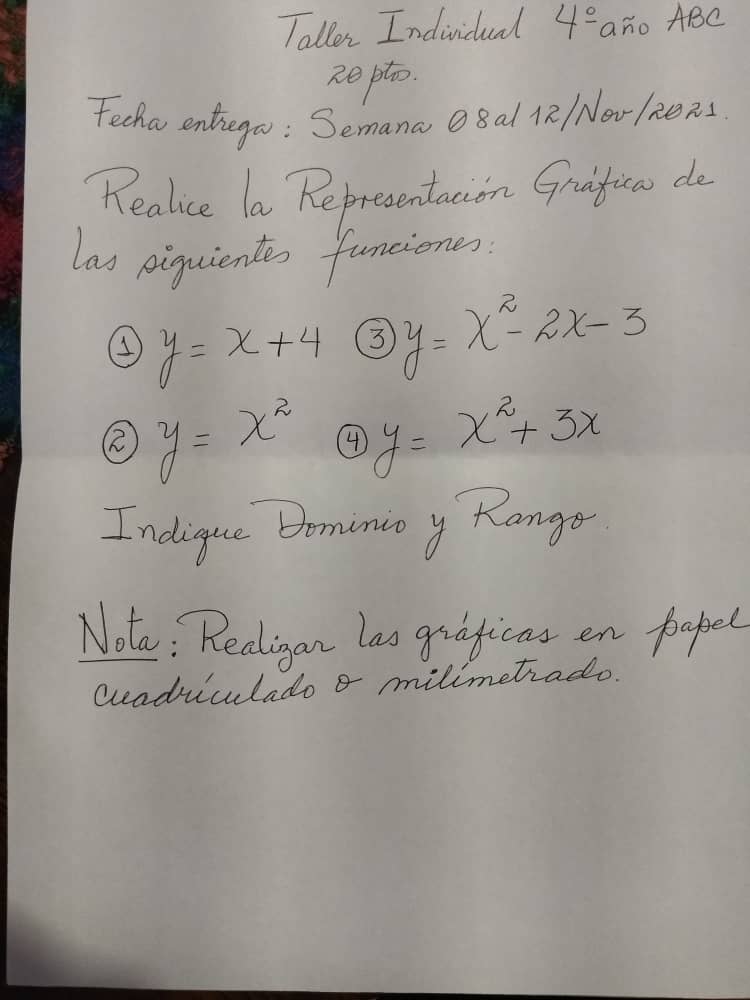 Taller Individual 4º año ABC
20 ptos.
Fecha entrega: Semana 08 al 12/Nov/2021.
Realice la Representación Gráfica de
las siguientes funciones:
① y = x + 4 ③ y = x² - 2x - 3
② y = x² ④ y = x² + 3x
Indique Dominio y Rango.
Nota: Realizar las gráficas en papel
cuadrículado o milímetrado.